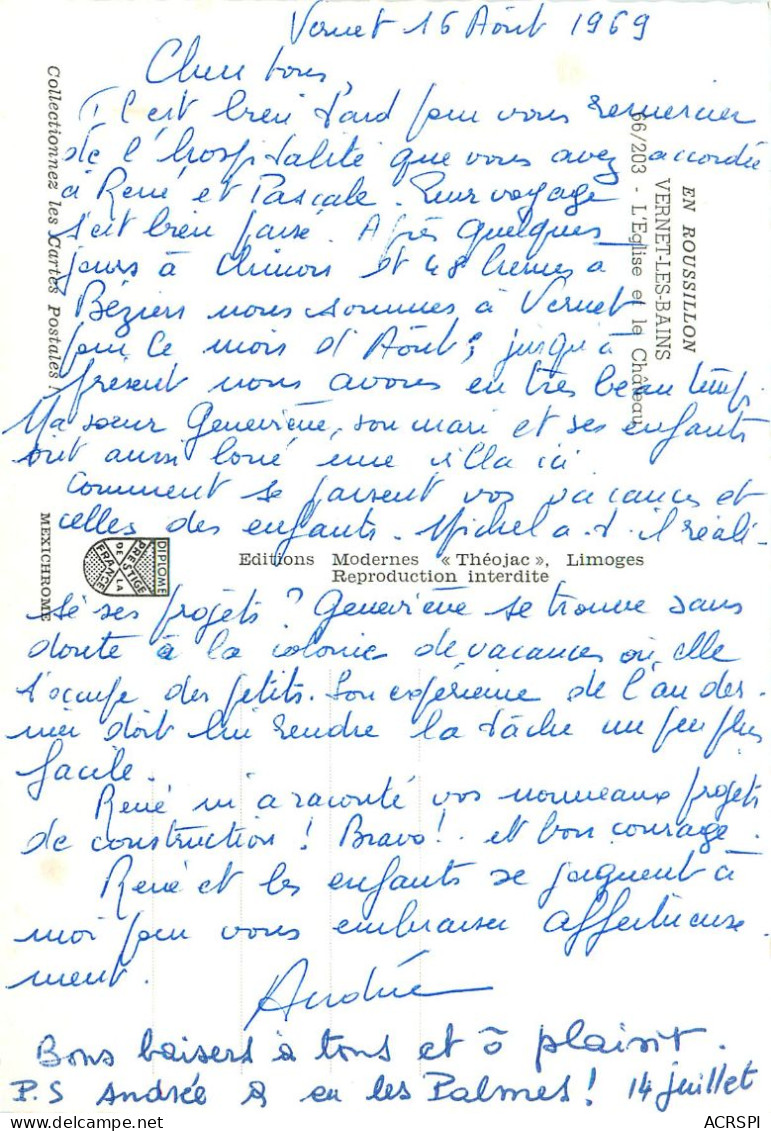 Vernet 16 Août 1969
Chers tous,
Il est bien tard pour vous remercier
de l'hospitalité que vous avez accordée
à René et Pascale. Leur voyage
s'est bien passé. Après quelques
jours à Chinon et 48 heures à
Béziers nous sommes à Vernet
pour le mois d'Août; jusqu'à
présent nous avons eu très beau temps.
Ma sœur Geneviève, son mari et ses enfants
ont aussi loué une villa ici.
Comment se passent vos vacances et
celles des enfants. Michel a-t-il réali-
sé ses projets? Geneviève se trouve sans
doute à la colonie de vacances où elle
s'occupe des petits. Son expérience de l'an der-
nier doit lui rendre la tâche un peu plus
facile.
René m'a raconté vos nouveaux projets
de construction! Bravo! et bon courage.
René et les enfants se joignent à
moi pour vous embrasser affectueuse-
ment.
Andrée
Bons baisers à tous et à plaisir.
P.S Andrée a eu les Palmes! 14 juillet
EN ROUSSILLON
VERNET-LES-BAINS
66/203 - L'Eglise et le Château
Collectionnez les Cartes Postales !
MEXICHROME
DIPLOME
PRESTIGE
DE LA
FRANCE
Editions Modernes « Théojac », Limoges
Reproduction interdite
ACRSPI